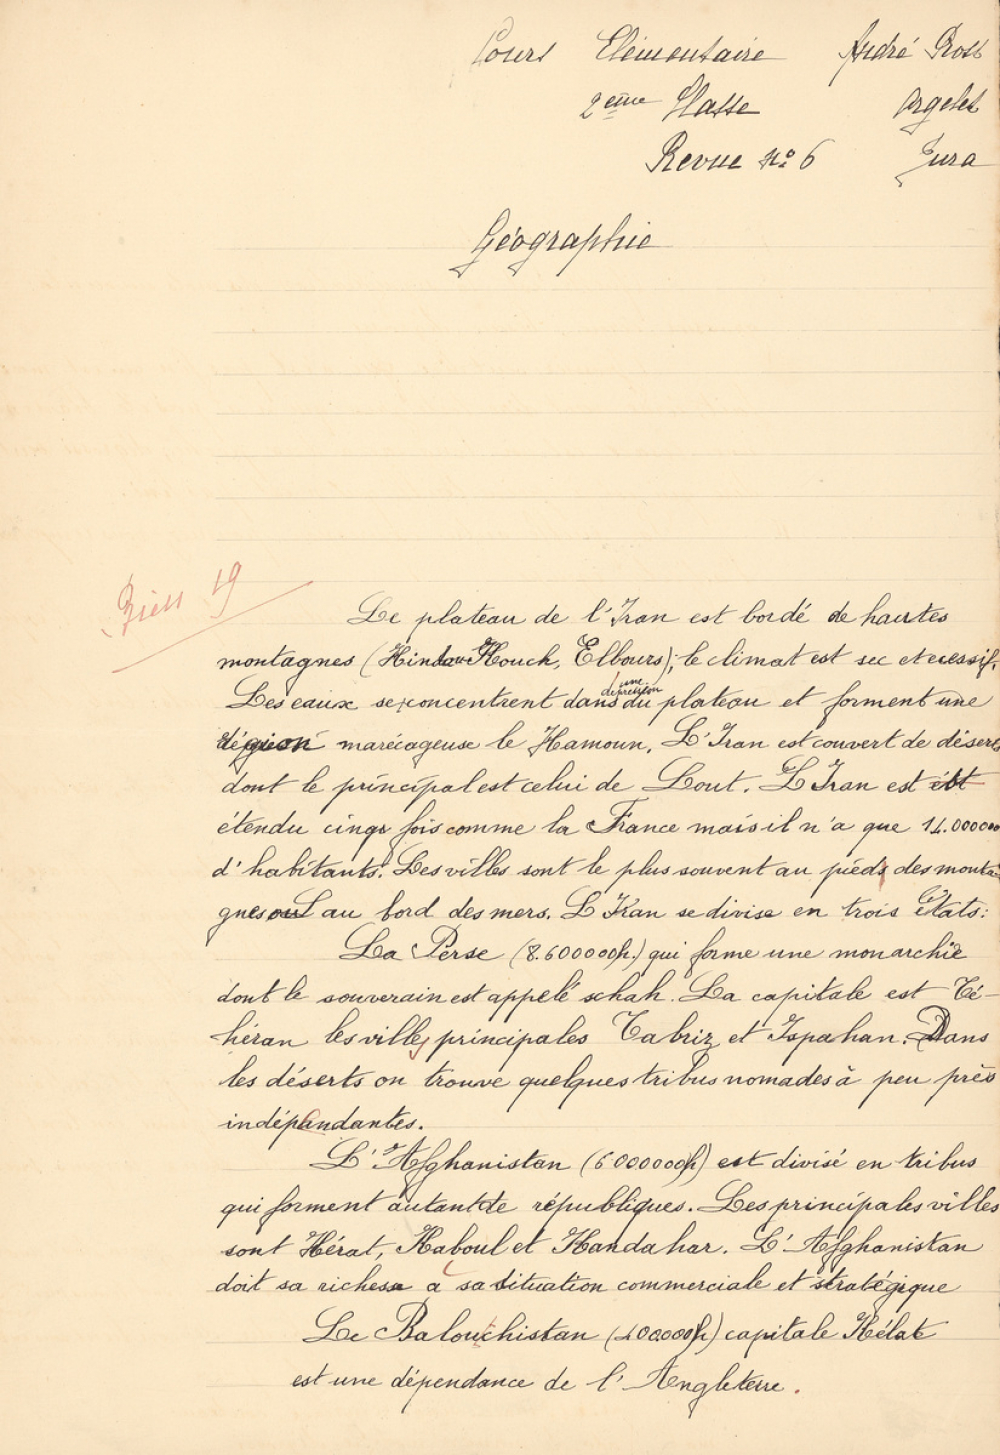 Cours Elémentaire André Prost
2eme Classe Orgelet
Revue No 6 Jura
Géographie
Bien 19
Le plateau de l'Iran est bordé de hautes
montagnes (Hindou-Kouch, Elbours); le climat est sec et excessif.
Les eaux se concentrent dans une depression du plateau et forment une
région marécageuse le Hamoun. L'Iran est couvert de déserts
dont le principal est celui de Lout. L'Iran est
étendu cinq fois comme la France mais il n'a que 14.000000
d'habitants. Les villes sont le plus souvent au pieds des monta-
gnes ou au bord des mers. L'Iran se divise en trois états:
La Perse (8.600000h.) qui forme une monarchie
dont le souverain est appelé schah. La capitale est Té-
héran les villes principales Tabriz et Ispahan. Dans
les déserts on trouve quelques tribus nomades à peu près
indépendantes.
L'Afghanistan (5000000h) est divisé en tribus
qui forment autant de républiques. Les principales villes
sont Hérat, Kaboul et Kandahar. L'Afghanistan
doit sa richesse a sa situation commerciale et stratégique
Le Baloutchistan (400000h) capitale Kélat
est une dépendance de l'Angleterre.